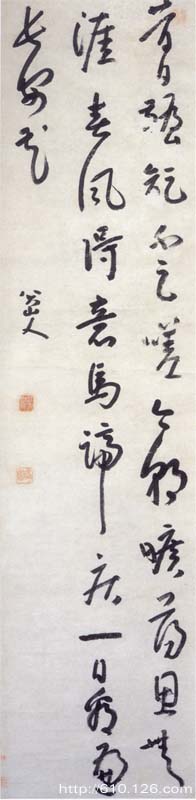 昔日齷齪不足嗟今朝曠蕩恩無
涯春風得意馬蹄疾一日看盡
長安花
八大山人
http://610.126.com